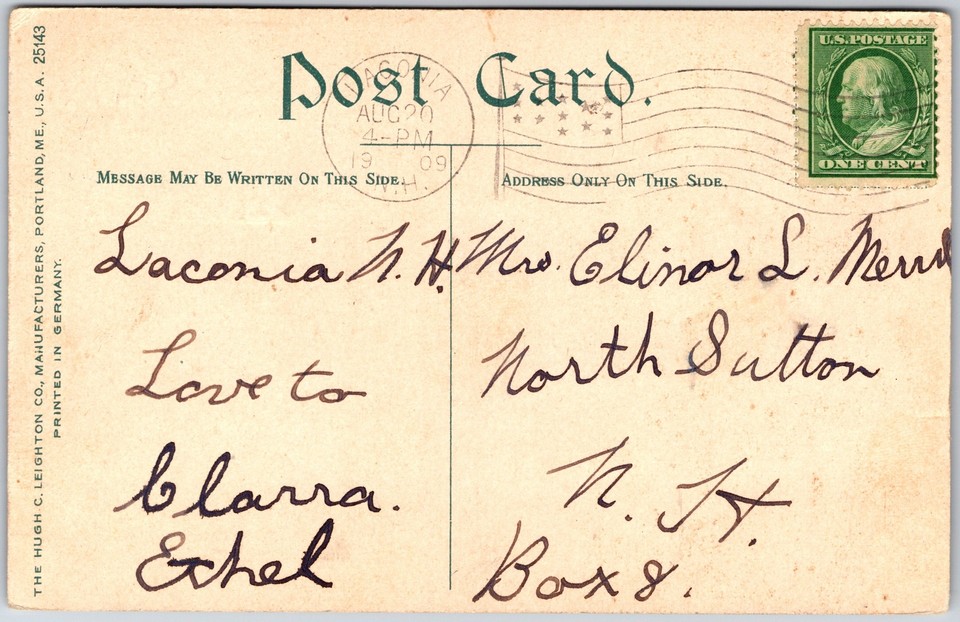 THE HUGH C. LEIGHTON CO., MANUFACTURERS, PORTLAND, ME., U.S.A. 25143
PRINTED IN GERMANY.
Post Card.
LACONIA
AUG 20
4-PM
19 09
N.H.
U.S. POSTAGE
ONE CENT
MESSAGE MAY BE WRITTEN ON THIS SIDE.
ADDRESS ONLY ON THIS SIDE.
Laconia N. H.
Love to
Clarra.
Ethel
Mrs. Elinor L. Merrill
North Sutton
N. H.
Box 8.